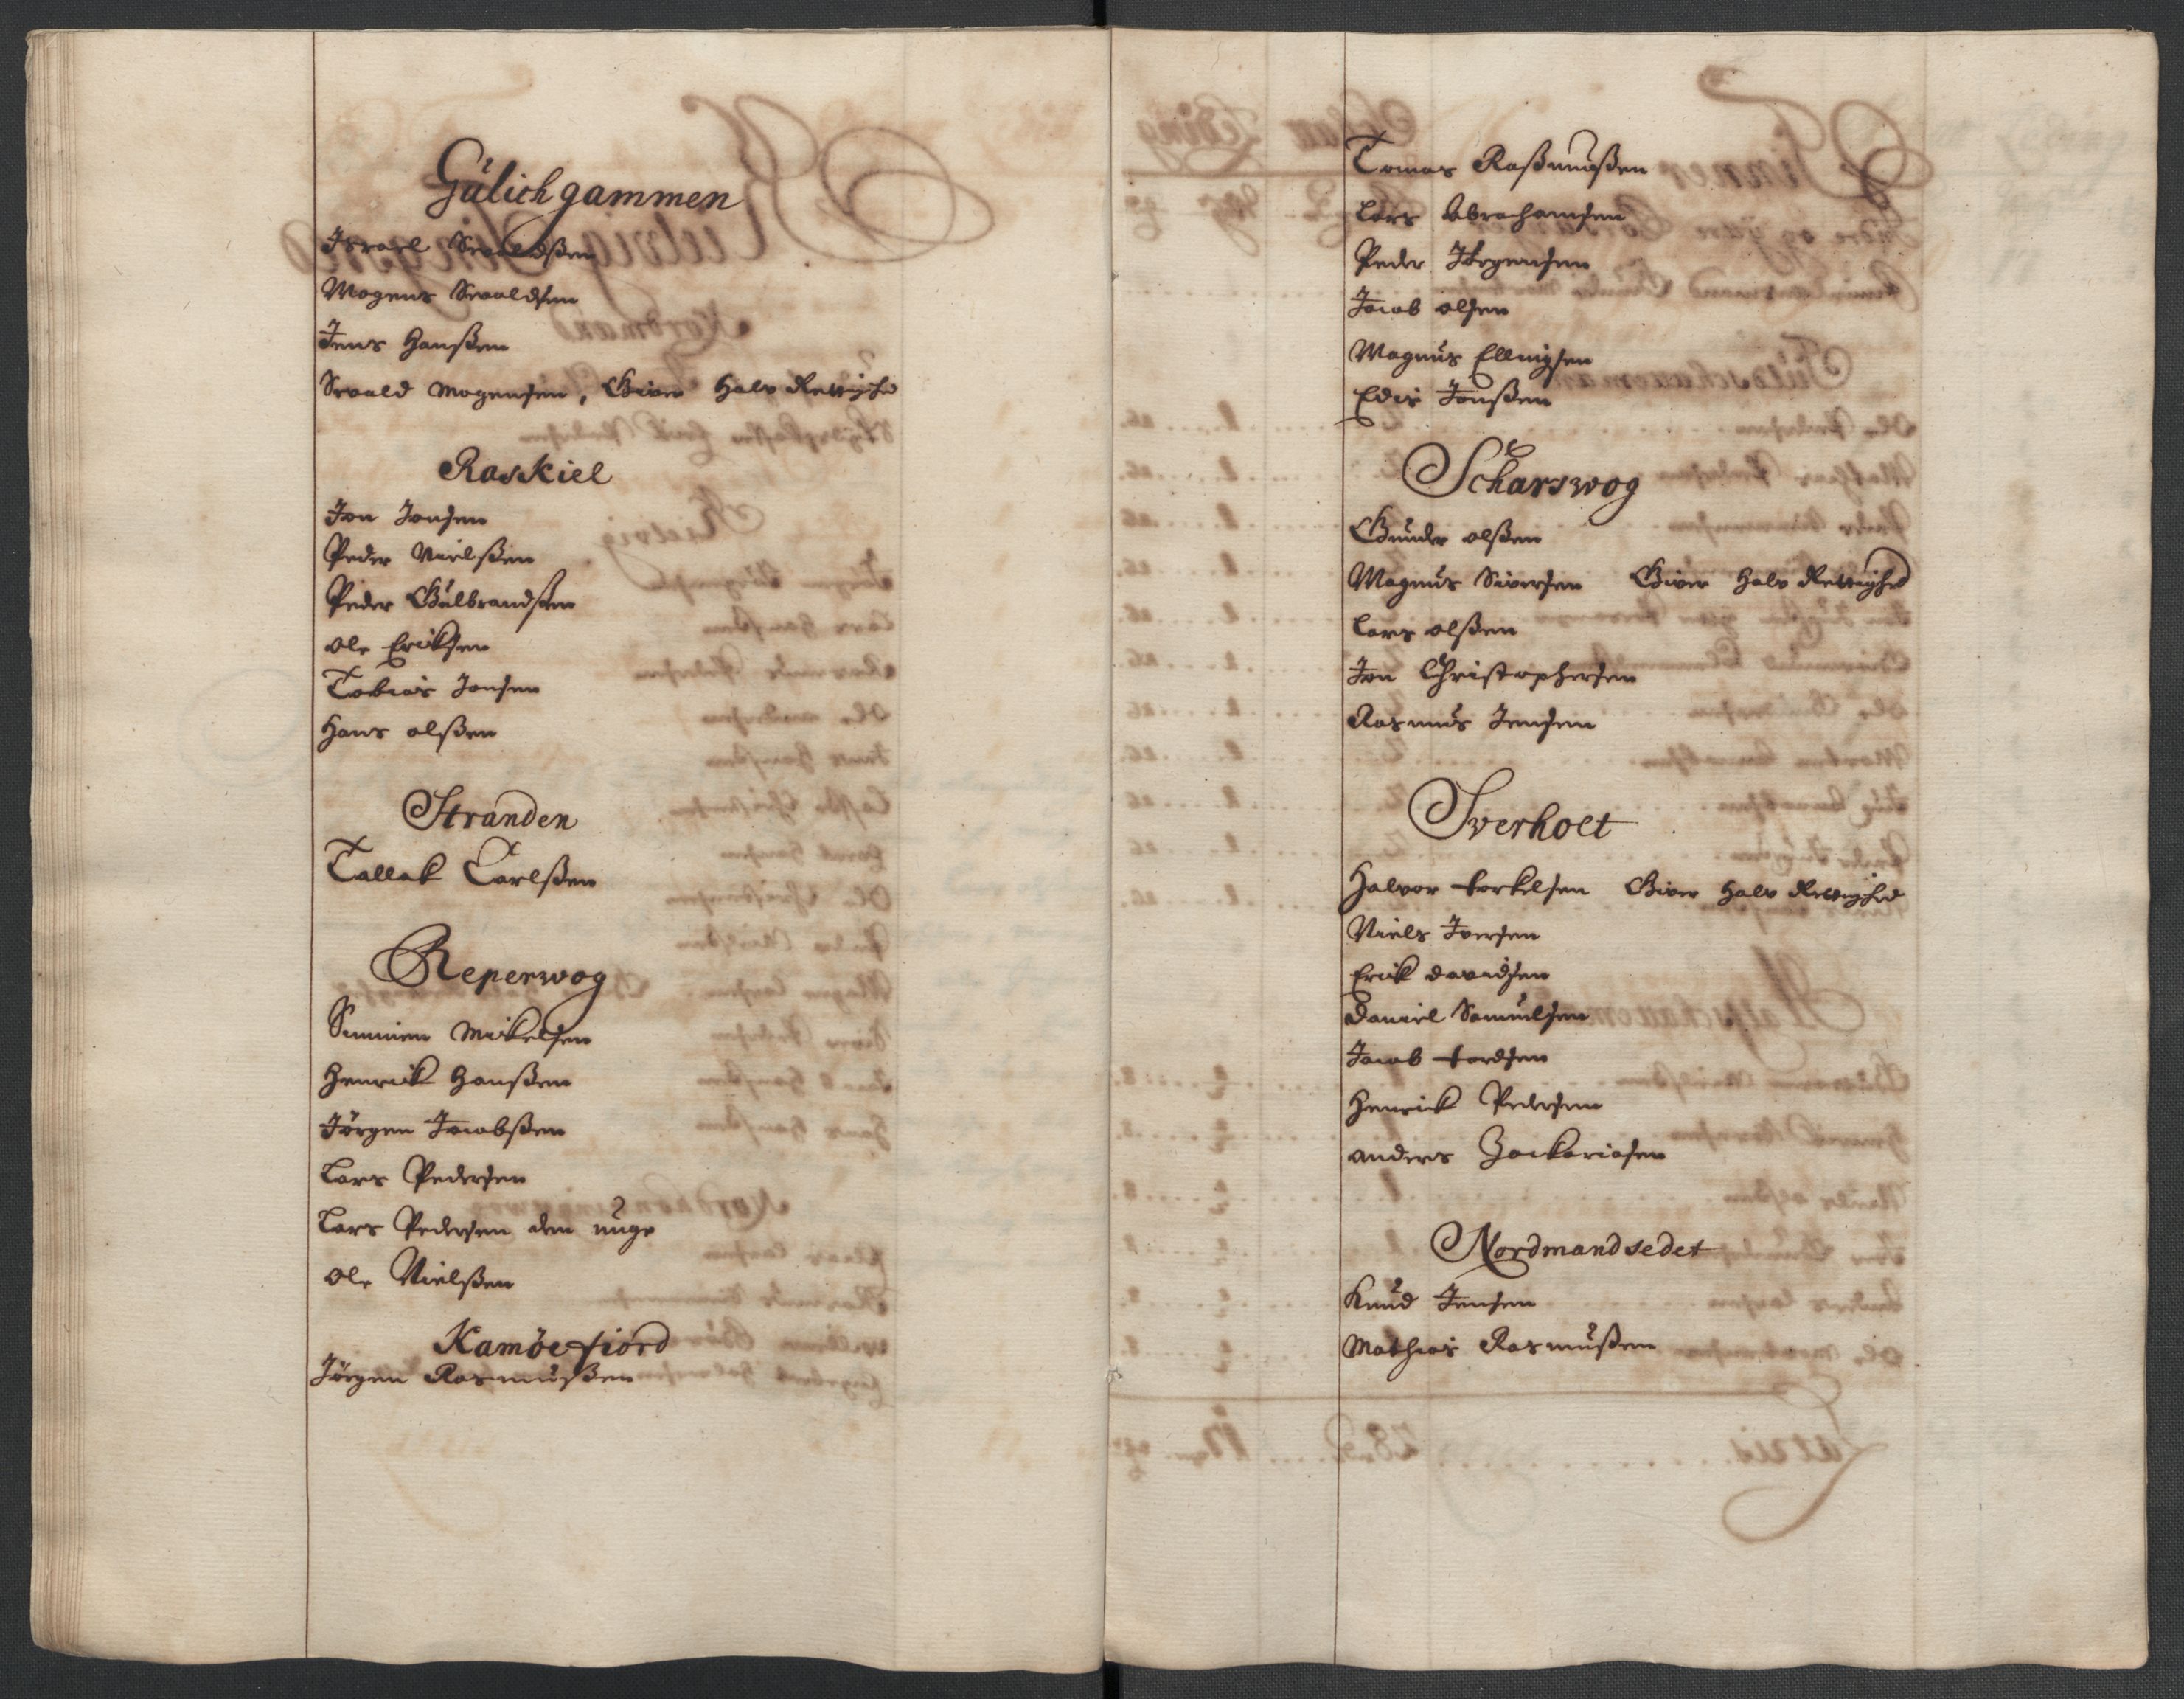 Gülichgammen
Israel Sewaldßen
Mogens Sewaldsen
Jens Hanßen
Sewald Mogensen, Giver Halv Rettighed
Raskiel
Jon Jonsen
Peder Nielßen
Peder Gulbrandsen
Ole Eriksen
Tobias Jonsen
Hans Olßen
Stranden
Tallak Carlßen
Reperwog
Simmen Mikelsen
Henrick Hanßen
Jörgen Jacobßen
Lars Pedersen
Lars Pedersen den unge
Ole Nielßen
Kamöefiord
Jörgen Rasmußen
Tomas Raßmusßen
Lars Abrahamsen
Peder Jörgensen
Jacob Olsen
Magnus Ellingsen
Edis Jonßen
Scharswog
Gunder Olßen
Magnus Siversen Giver Halv Rettighed
Lars Olßen
Jon Christophersen
Rasmus Jensen
Sverholt
Halvor Torkelsen Giver Halv Rettighed
Niels Iversen
Erick Davidsen
Daniel Samuelsen
Jacob Tordsen
Henrick Pedersen
Anders Zackariasen
Nordmandsedet
Knud Jensen
Mathias Rasmußen